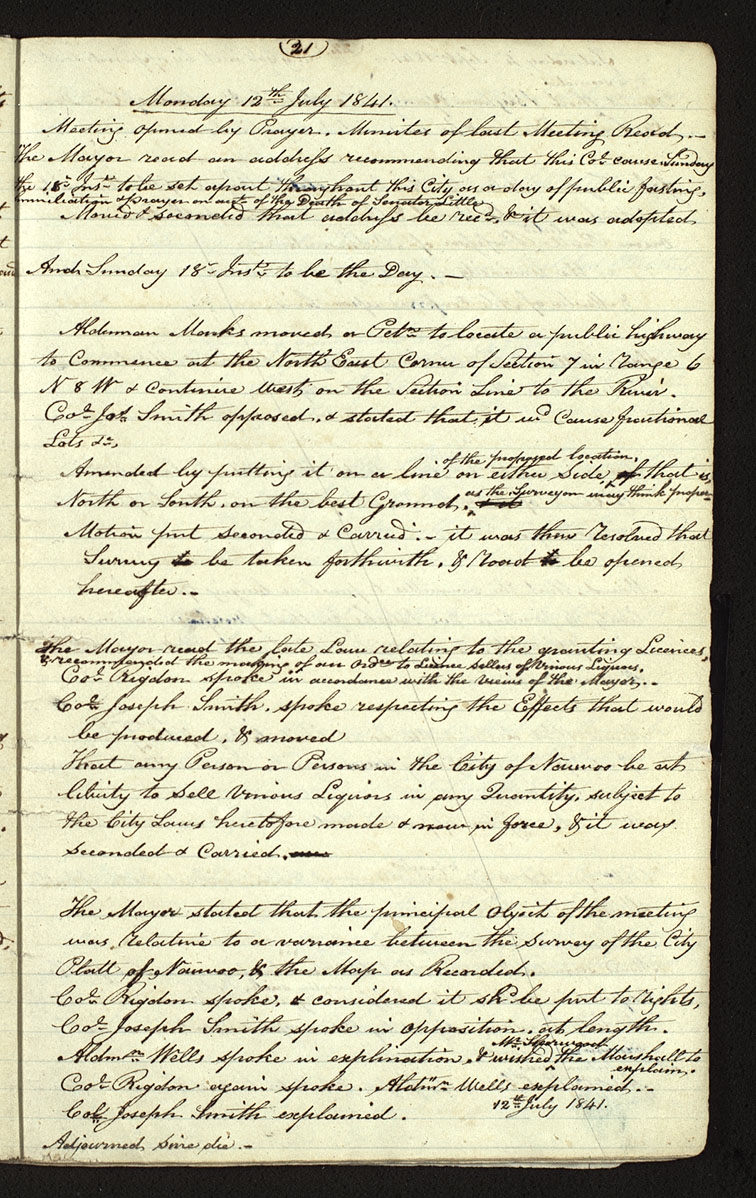 21
Monday 12th July 1841.
Meeting opened by Prayer. Minutes of last Meeting Read.—
The Mayor read an address recommending that this Col cause Sunday
the 18th Inst to be set apart throughout this City as a day of public fasting,
humiliation & prayer on acct of the Death of Senator Little
Moved & seconded that address be recd, & it was adopted
And Sunday 18th Inst to be the Day. —
Alderman Marks moved a Petn to locate a public highway
to Commence at the North East Corner of Section 7 in Range 6
N 8 W & continue West, on the Section Line to the River.
Col Jos Smith opposed, & stated that, it wd Cause fractional
Lots &c,
of the proposed location,
Amended by putting it on a line on either Side of that is,
as the Surveyor may think proper
North or South, on the best Ground.
Motion put seconded & Carried.— it was then Resolved that
Survey to be taken forthwith, & Road to be opened
hereafter.—
The Mayor read the late Law relating to the granting Licences,
& recommended the making of an Order to Licence Sellers of Vinous Liquors.
Col Rigdon spoke in accordance with the views of the Mayor.—
Col Joseph Smith, spoke respecting the Effects that would
be produced, & moved
That any Person or Persons in the City of Nauvoo be at
liberty to Sell Vinous Liquors in any Quantity, subject to
the City Laws heretofore made & now in force, & it was
seconded & Carried.
The Mayor stated that the principal object of the meeting
was relative to a variance between the Survey of the City
Platt of Nauvoo, & the Map as Recorded.
Col Rigdon spoke, & considered it shd be put to rights,
Col Joseph Smith spoke in opposition, at length.
Mr Sherwood
Aldmn Wells spoke in explination, & wished the Marshall to
explain.
Col Rigdon again spoke. Aldmn Wells explained.—
Col Joseph Smith explained.
12th July 1841.
Adjourned sine die.—